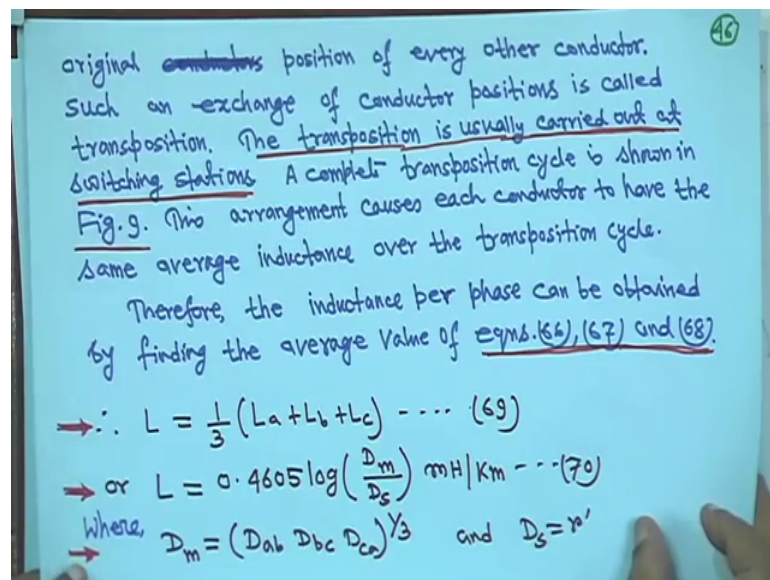 46
original position of every other conductor.
Such an exchange of conductor positions is called
transposition. The transposition is usually carried out at
switching stations. A complet transposition cycle is shown in
Fig.9. This arrangement causes each conductor to have the
same average inductance over the transposition cycle.
Therefore, the inductance per phase can be obtained
by finding the average value of eqns.(66),(67) and (68).
∴ L = 1/3 (La + Lb + Lc) ---- (69)
or L = 0.4605 log(Dm/Ds) mH/Km ---(70)
Where, Dm = (Dab Dbc Dca)^1/3 and Ds = r'